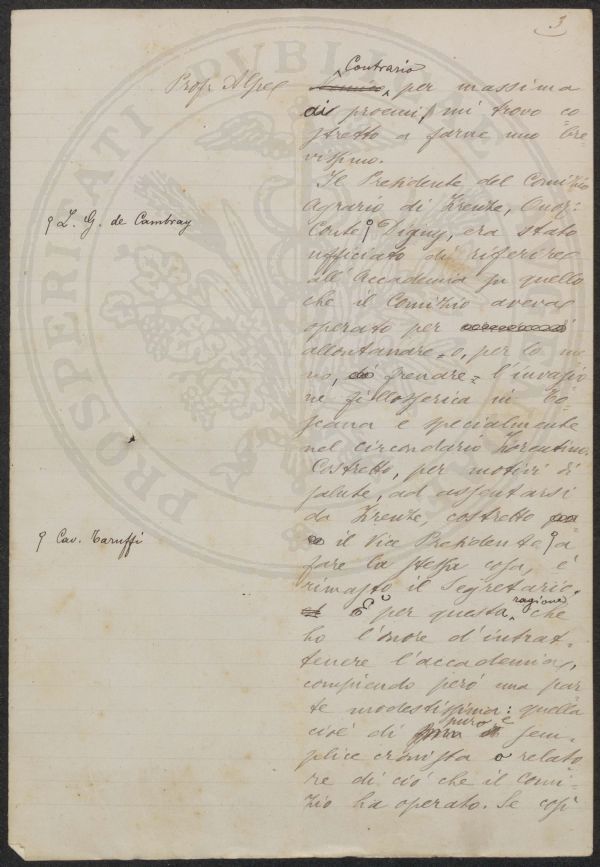 3
Contrario
Prof. Alpe per massima
di proemi, mi trovo co
stretto a farne uno bre
vissimo.
Il Presidente del Comizio
Agrario di Firenze, Onor:
Conte Digny, era stato
L. G. de Cambray
ufficiato di riferire
all'Accademia su quello
che il Comizio aveva
operato per
allontanare=o, per lo me
no, frenare= l'invasio
ne fillosserica in To
scana e specialmente
nel circondario fiorentino.
Costretto, per motivi di
salute, ad assentarsi
da Firenze, costretto
il Vice Presidente a
Cav. Taruffi
fare la stessa cosa, è
rimasto il Segretario.
È per questa ragione che
ho l'onore d'intrat=
tenere l'accademia,
compiendo però una par
te modestissima: quella
cioè di puro e sem=
plice cronista o relato
re di ciò che il Comi=
zio ha operato. Se così
PROSPERITATI PVBLICAE